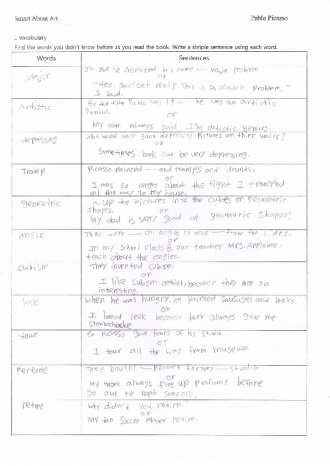 Smart About Art
Pablo Picasso
I. Vocabulary
Find the words you didn't know before as you read the book. Write a simple sentence using each word.
Words
Sentences
Major
But he shortened his name — major problem
or
"Hey, don't get really This is a Major Problem."
I said.
Artistic
By the time Pablo was 19 — he was an artistic
genius.
or
My mom always said I'm artistic genius.
depressing
who would want such depressing pictures on their walls?
or
Sometimes book can be very depressing.
Tramp
Picasso painted — and tramps and drunks.
or
I was so angry about the fight I tramped
all the way to my house.
geometric
up the pictures into the cubes or geometric
shapes.
or
My dad is very good at geometric shapes!
angle
They were — all angles at once — from the sides.
or
In my school class B our teacher Mrs.
teach about the angles.
cubism
They invented cubism.
or
I like cubism artist, because they are so
interesting.
leek
when he was hungry, he painted sausages and leeks.
or
I head leek because leek always give me
stomachache
tour
So Picasso gave tours of his studio
or
I tour all the way from museum.
Perfume
They bought — perfume factory — studio
or
My mom always fire up perfume before
go out to met someone
retire
Why didn't you retire?
or
My fan Soccer Player retire.